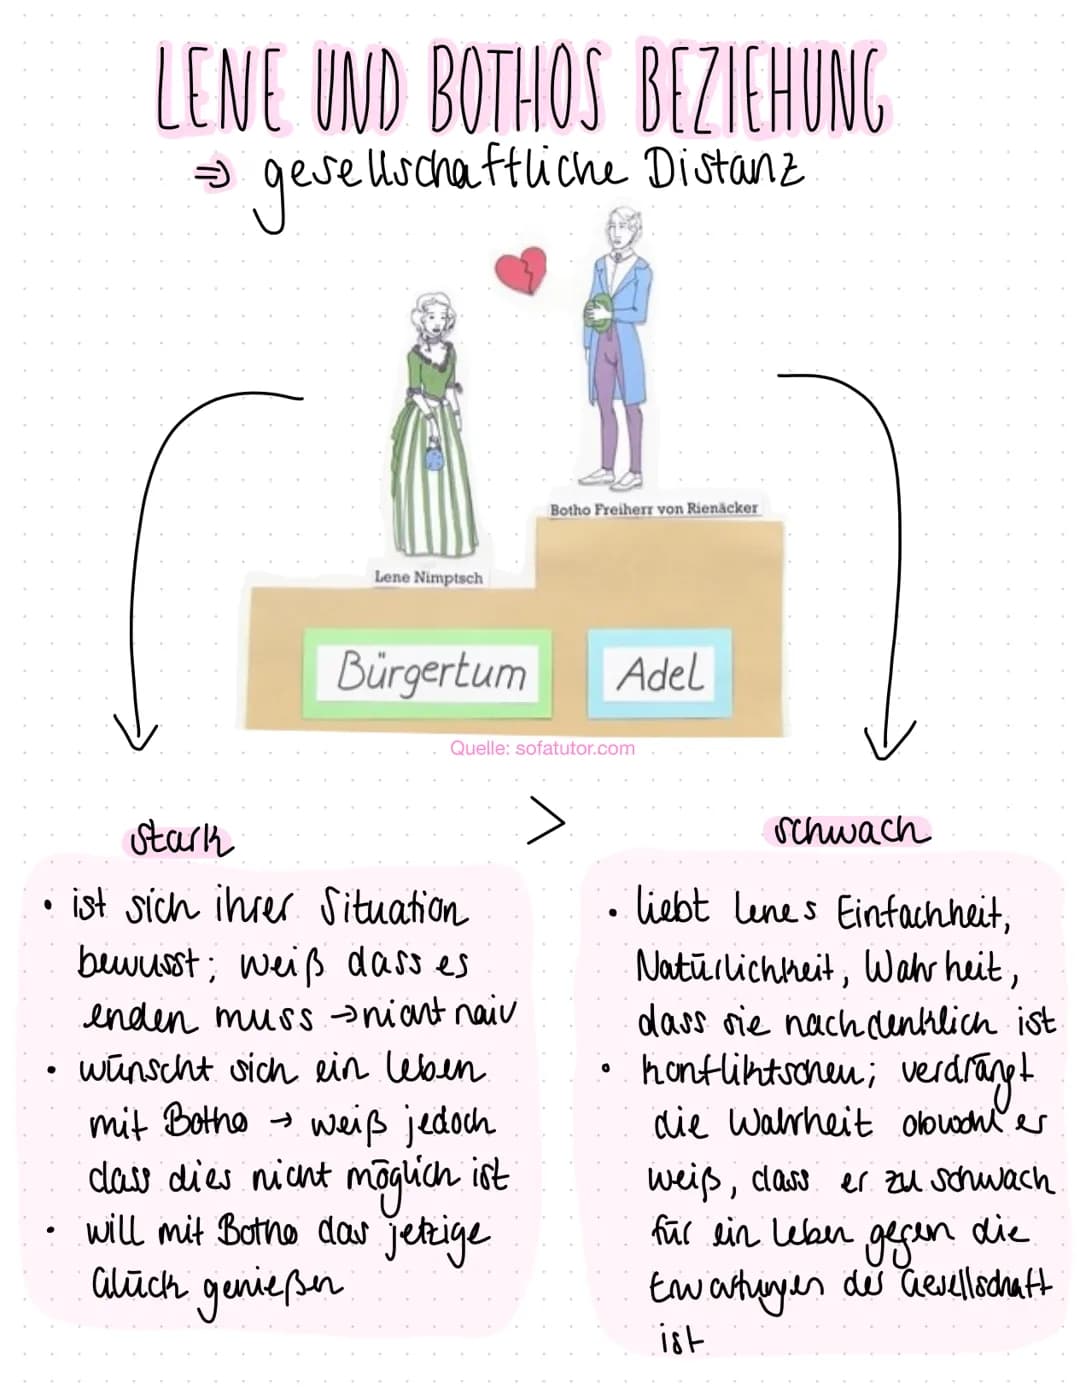 LENE UND BOTHOS BEZIEHUNG
⇒ gesellschaftliche Distanz
Botho Freiherr von Rienäcker
Lene Nimptsch
Bürgertum
Adel
Quelle: sofatutor.com
stark
>
schwach
• ist sich ihrer Situation
bewusst; weiß dass es
enden muss → nicht naiv
• wünscht sich ein Leben
mit Botho → weiß jedoch
dass dies nicht möglich ist
• will mit Botho das jetzige
Glück genießen
• liebt Lenes Einfachheit,
Natürlichkeit, Wahrheit,
dass sie nachdenklich ist
• konfliktscheu; verdrängt
die Wahrheit obwohl er
weiß, dass er zu schwach
für ein Leben gegen die
Erwartungen der Gesellschaft
ist